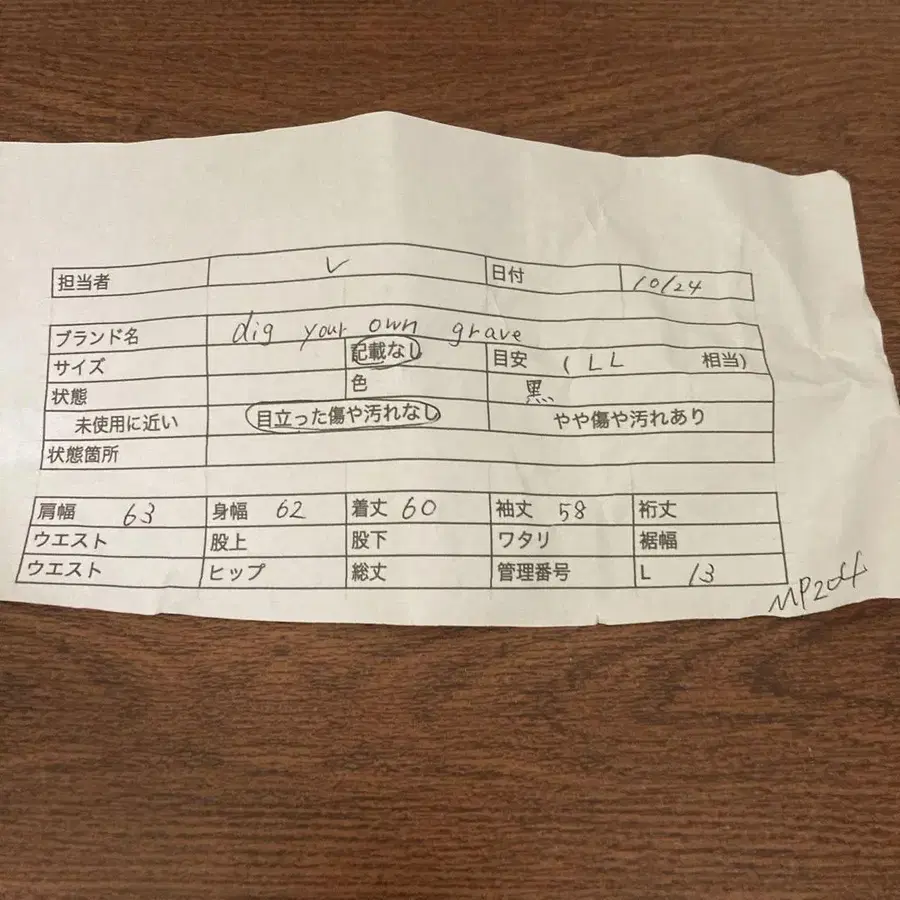 担当者 V 日付 10/24
ブランド名 dig your own grave
サイズ 記載なし 目安 (LL 相当)
状態 色 黒
未使用に近い 目立った傷や汚れなし やや傷や汚れあり
状態箇所
肩幅 63 身幅 62 着丈 60 袖丈 58 裄丈
ウエスト 股上 股下 ワタリ 裾幅
ウエスト ヒップ 総丈 管理番号 L 13
MP204